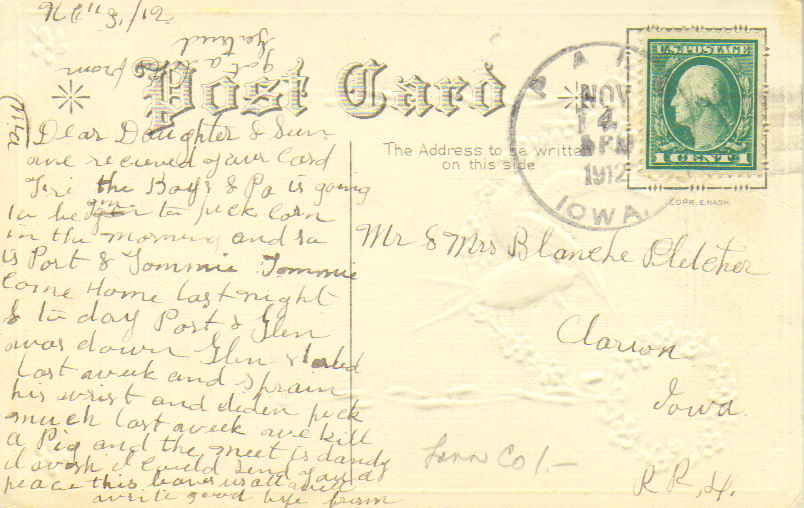 Post Card
(Ma
Dear Daughter & Sun
we recieved your Card
Fri the Boys & Pa is going
to be gin to pick Corn
in the morning and so
is Port & Tommie Tommie
Come Home last night
& to day Port & Glen
was down Glen started
last week and sprain
his wrist and diden pick
much last week we kill
a Pig and the meet is dandy
I wish I Could send you a
peace this leaves us all well
write good bye from
got a from
Gertrud
The Address to be written
on this side
NOV
4
PM
1912
IOWA.
U.S. POSTAGE
1 CENT 1
COPR. E. NASH
Mr & Mrs Blanche Pletcher
Clarion
Iowa.
Linn Co 1.-
R R, 4.